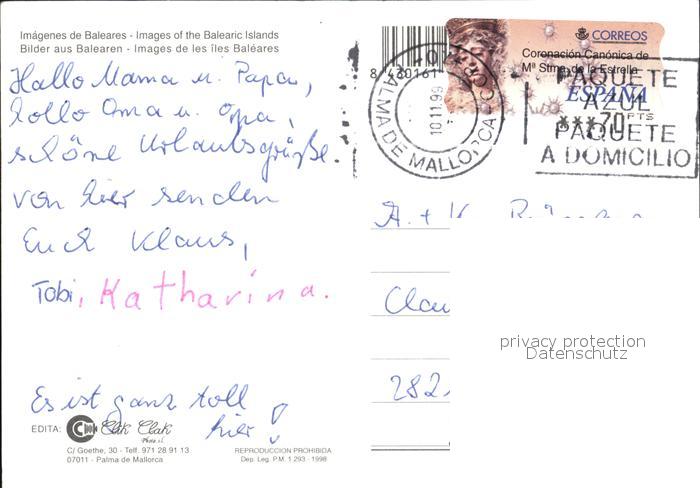 Imágenes de Baleares - Images of the Balearic Islands
Bilder aus Balearen - Images de les îles Baléares
Hallo Mama u. Papa,
hallo Oma u. Opa,
schöne Urlaubsgrüße
von hier senden
Euch Klaus,
Tobi, Katharina.
Es ist ganz toll
hier!
EDITA: Clik Clak
Photo s.l.
C/ Goethe, 30 - Telf. 971 28 91 13
07011 - Palma de Mallorca
REPRODUCCION PROHIBIDA
Dep. Leg. P.M. 1 293 - 1998
8 430161
PALMA DE MALLORCA
10 11 99
CORREOS
Coronación Canónica de
Mª Stma. de la Estrella
ESPAÑA
***70 PTS
PAQUETE
AZUL
PAQUETE
A DOMICILIO
A. + K.
282
privacy protection
Datenschutz